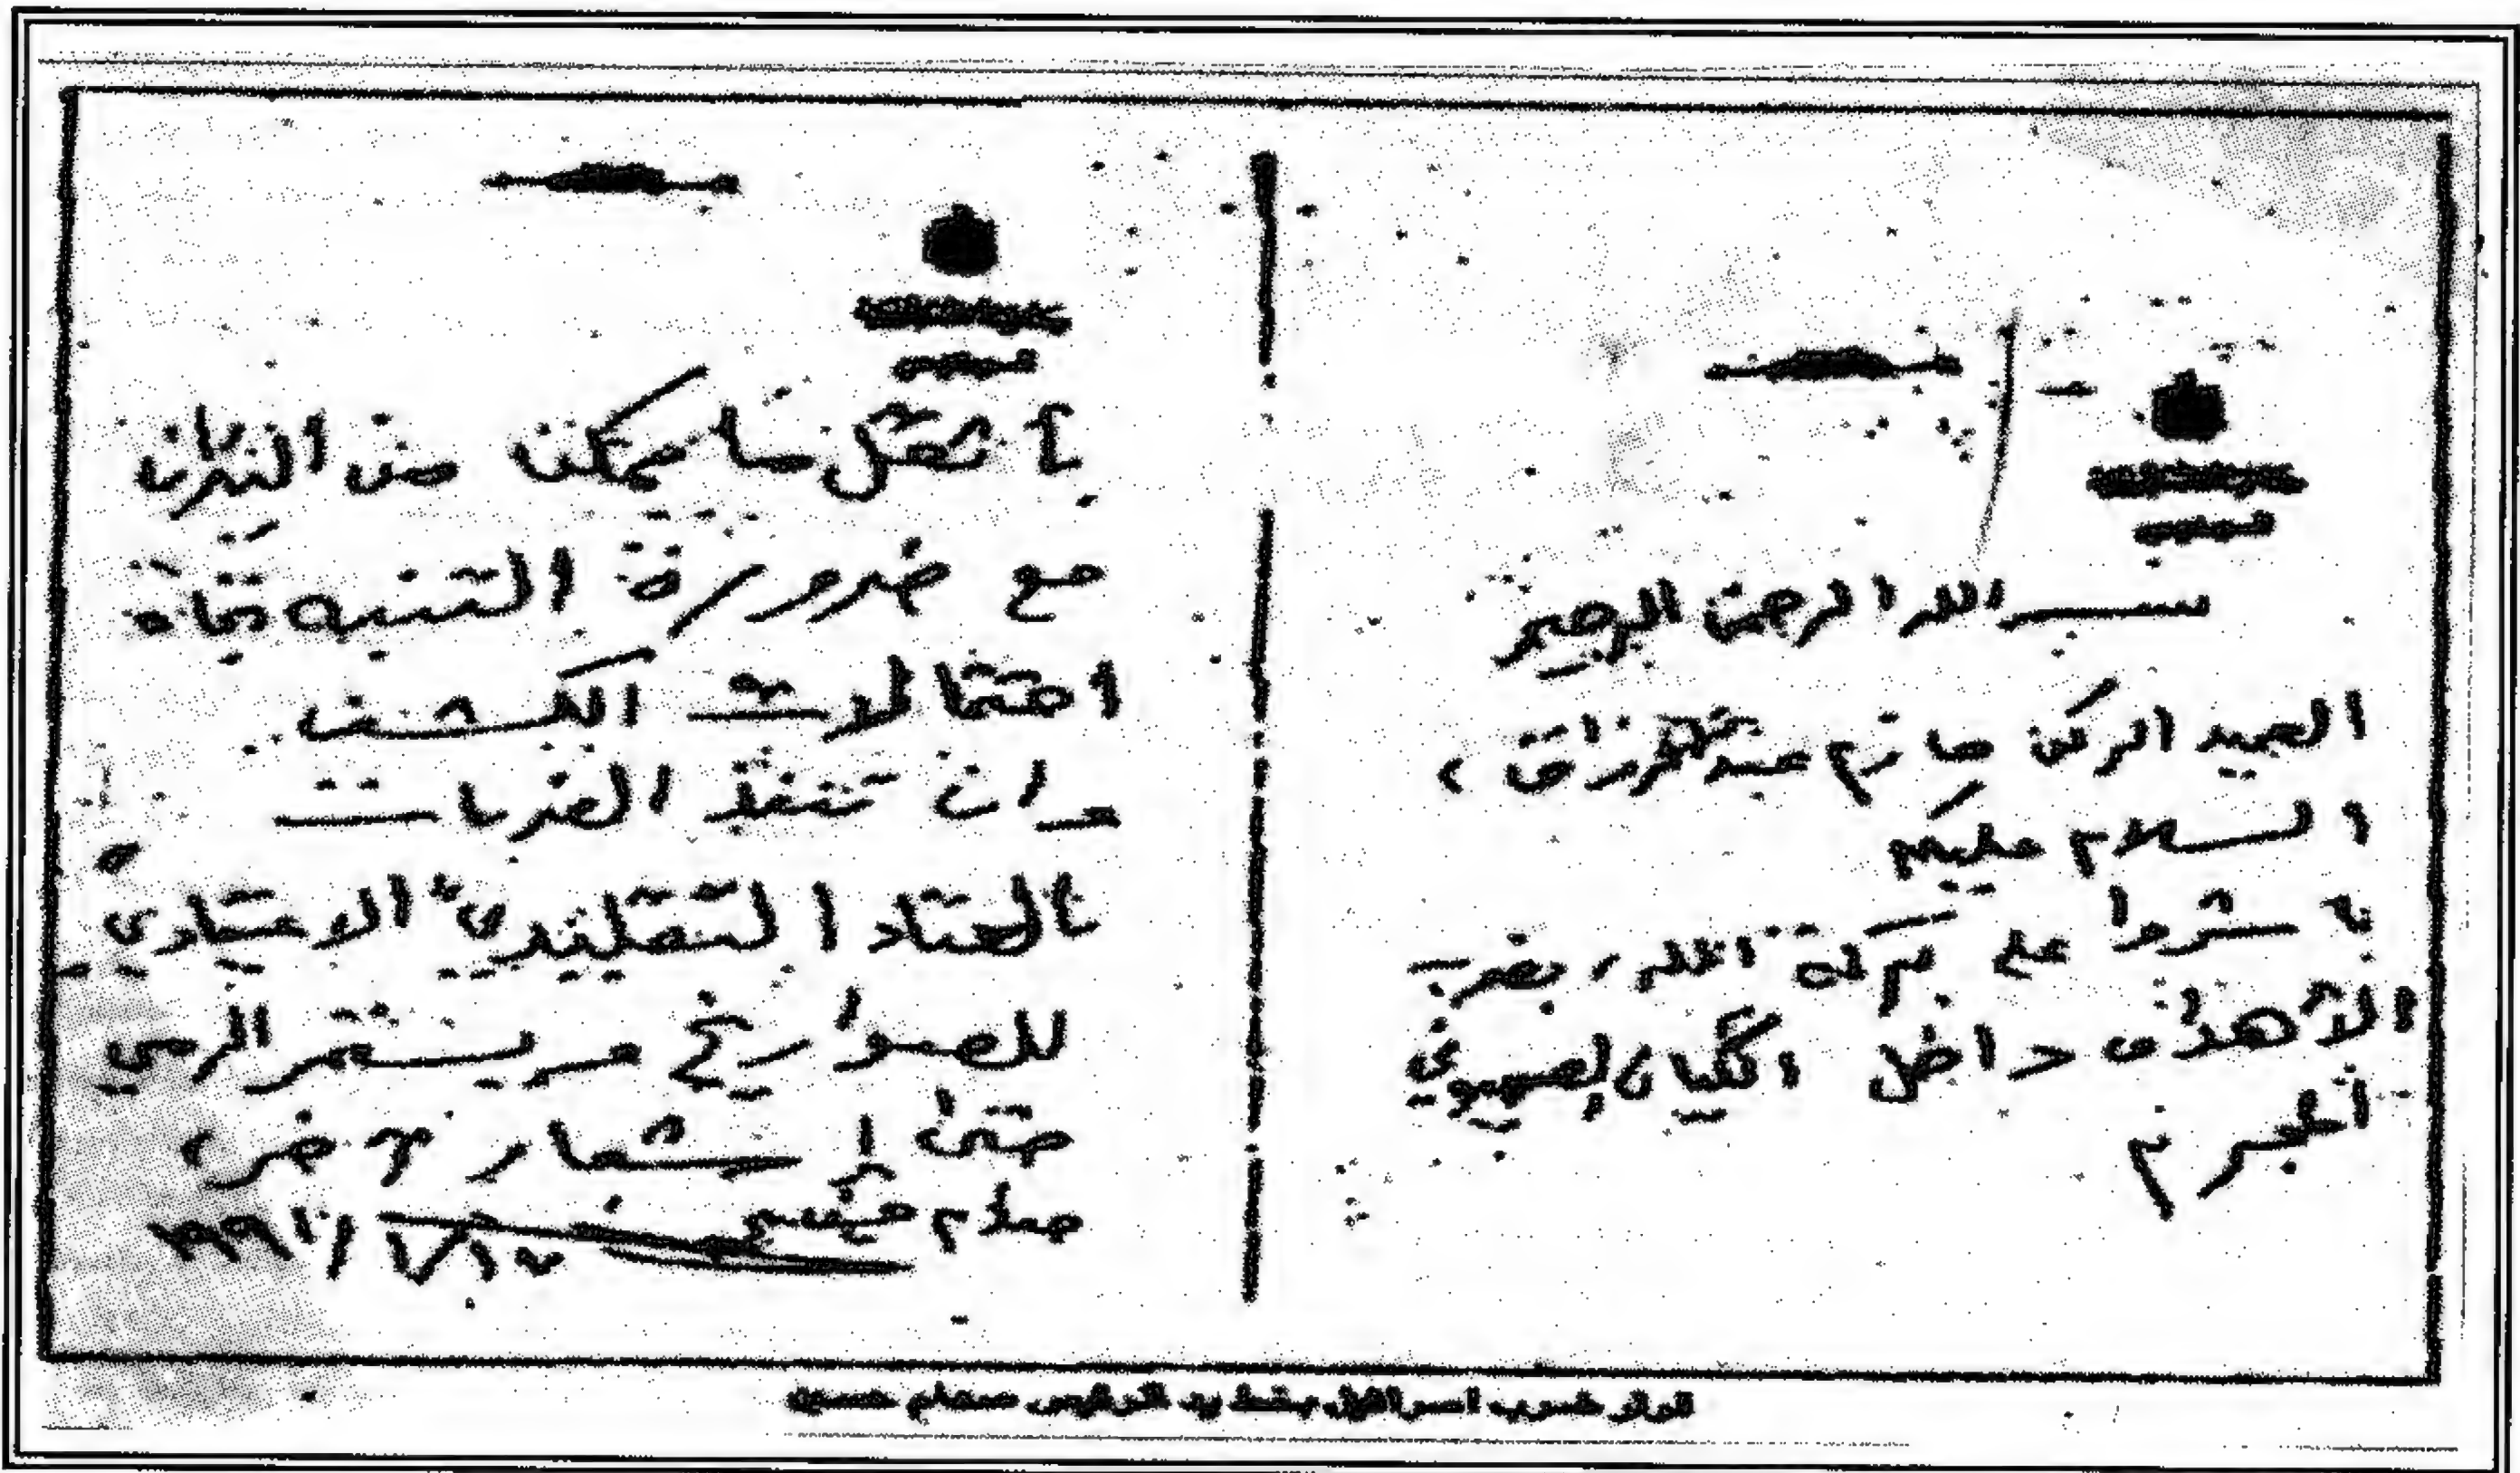 بسم الله الرحمن الرحيم
العميد الركن حازم عبدالرزاق ،
السلام عليكم
باشروا على بركة الله ، بضرب
الأهداف داخل الكيان الصهيوني
المجرم
بأثقل ما يمكن من النيران
مع ضرورة الانتباه تجاه
احتمالات الكشف
وان تنفذ الضربات
بالعتاد التقليدي "الاعتيادي"
للصواريخ ويستمر الرمي
حتى إشعار آخر ،
صدام حسين
١٧ / ١ / ١٩٩١
قرار ضرب اسرائيل بخط يد الرئيس صدام حسين